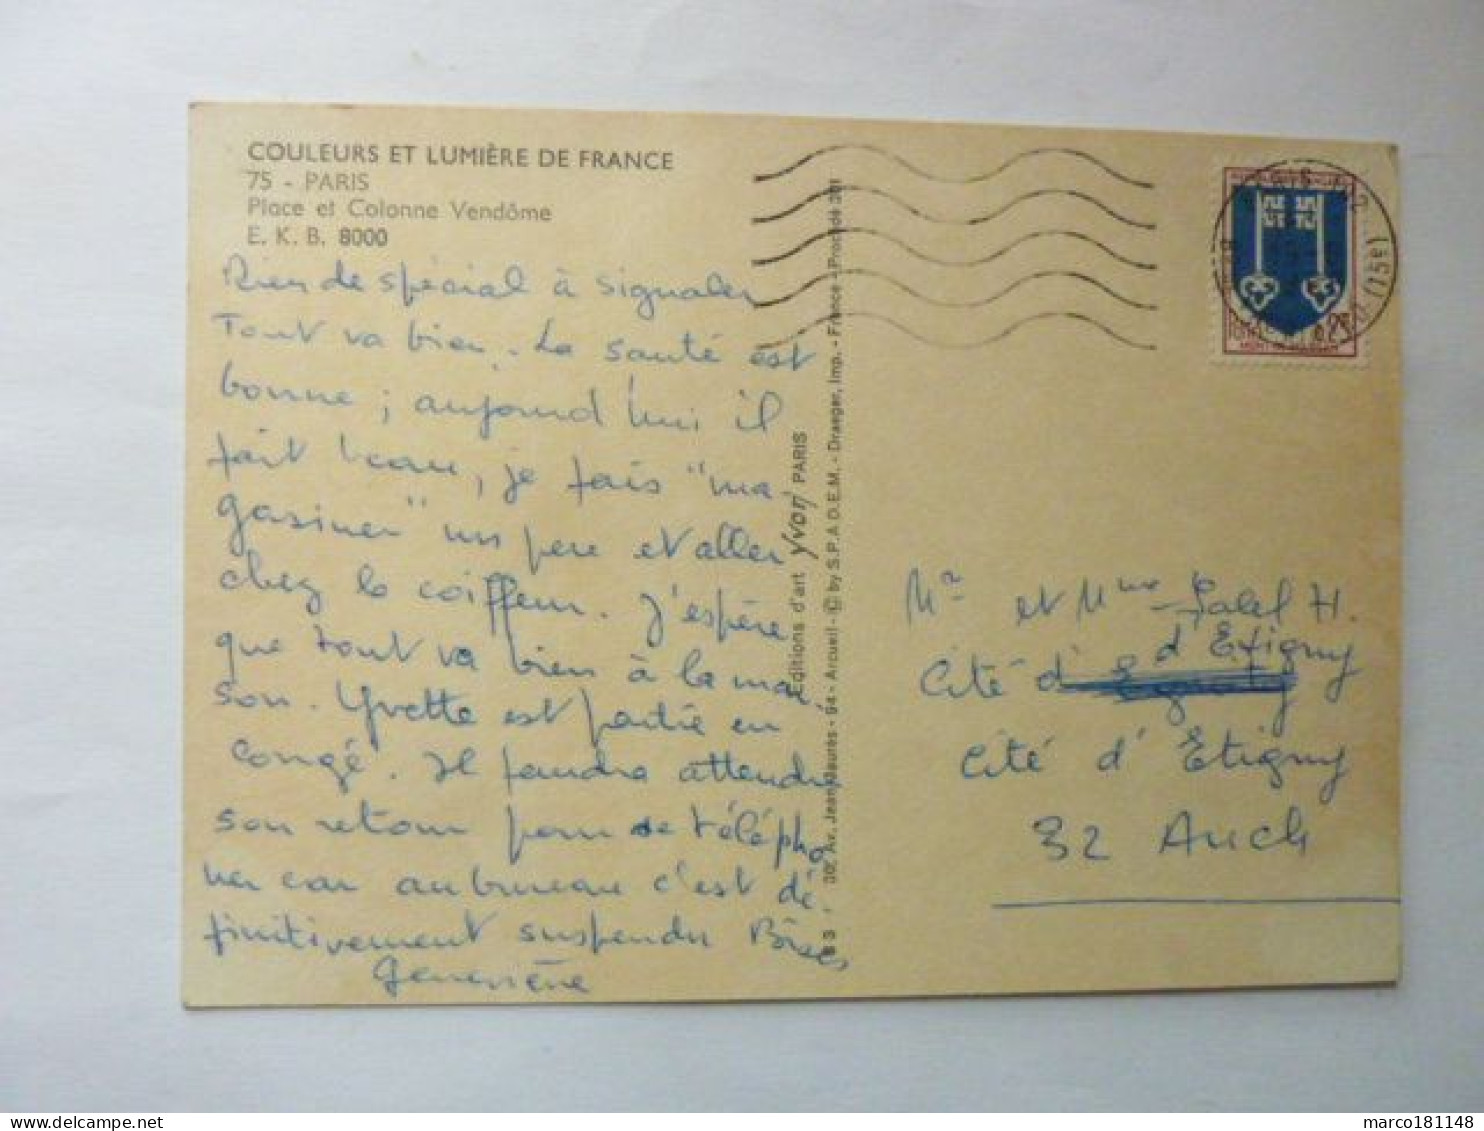 COULEURS ET LUMIÈRE DE FRANCE
75 - PARIS
Place et Colonne Vendôme
E. K. B. 8000
Rien de spécial à signaler
Tout va bien. La santé est
bonne ; aujourd'hui il
fait beau, je fais "ma-
gasiner" un peu et aller
chez le coiffeur. J'espère
que tout va bien à la mai
son. Yvette est partie en
congé. Il faudra attendre
son retour pour te télépho
ner car au bureau c'est dé
finitivement suspendu Bises
Geneviève
Editions d'art Yvon PARIS
30, Av. Jean Jaurès - 94 - Arcueil - © by S.P.A.D.E.M. - Draeger, Imp. - France - Procédé 301
Mr et Mme H.
d'Etigny
Cité d'
Cité d'Etigny
32 Auch
marco181148